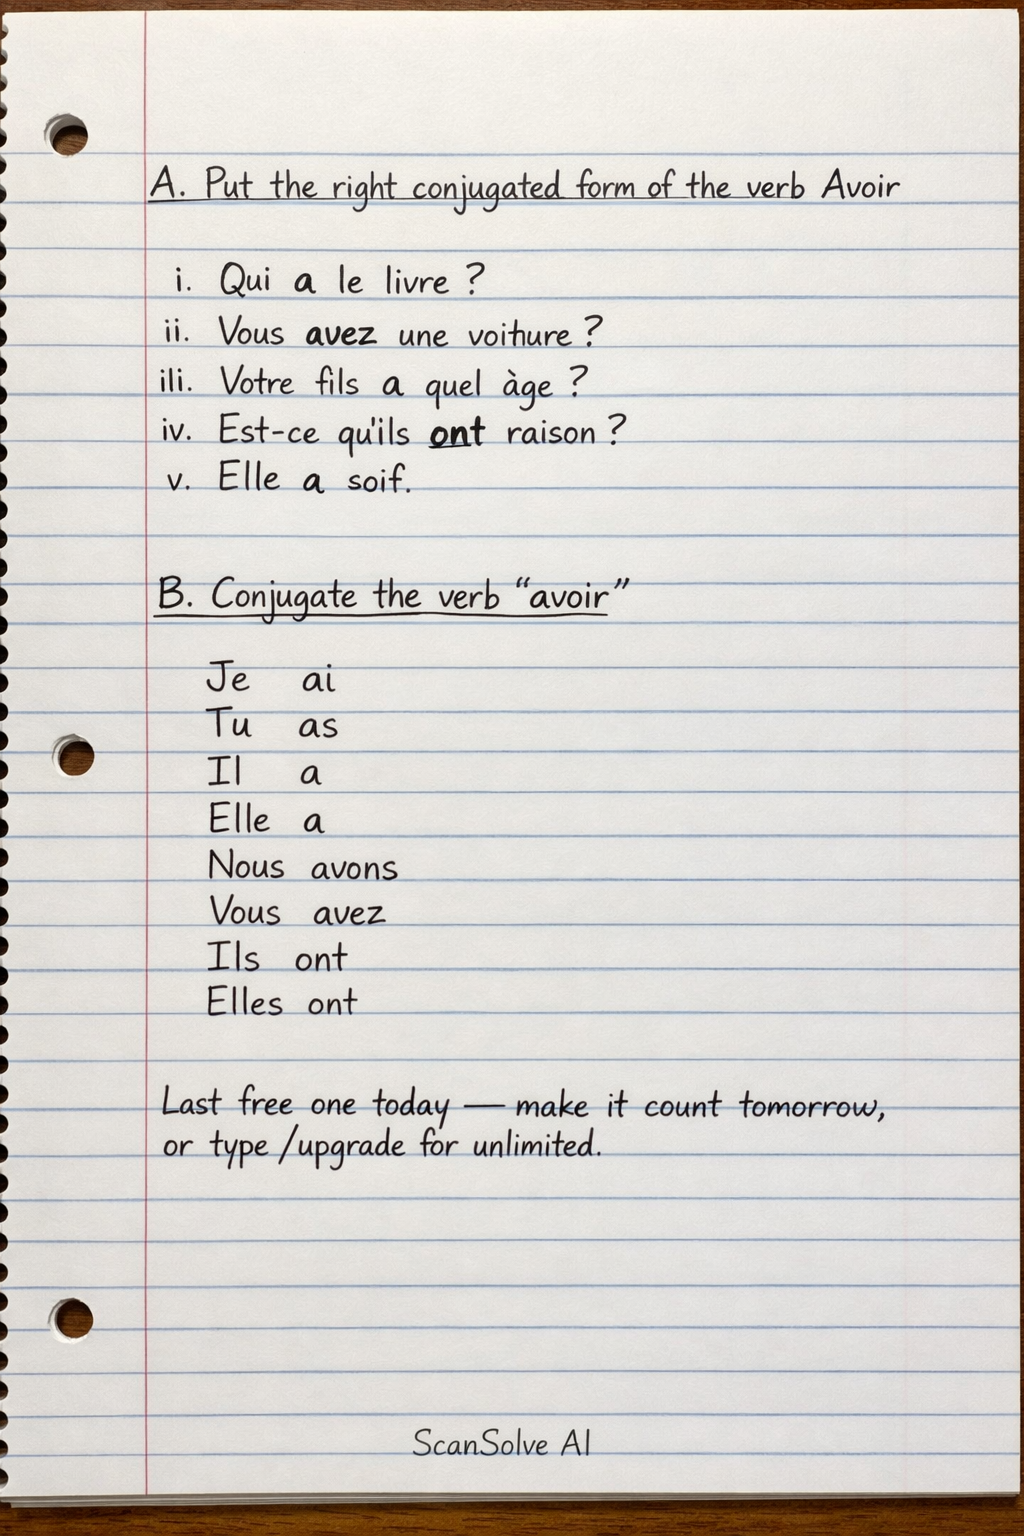 A. Put the right conjugated form of the verb Avoir
i. Qui a le livre ?
ii. Vous avez une voiture ?
iii. Votre fils a quel àge ?
iv. Est-ce qu'ils ont raison ?
v. Elle a soif.
B. Conjugate the verb “avoir”
Je ai
Tu as
Il a
Elle a
Nous avons
Vous avez
Ils ont
Elles ont
Last free one today — make it count tomorrow,
or type /upgrade for unlimited.
ScanSolve AI